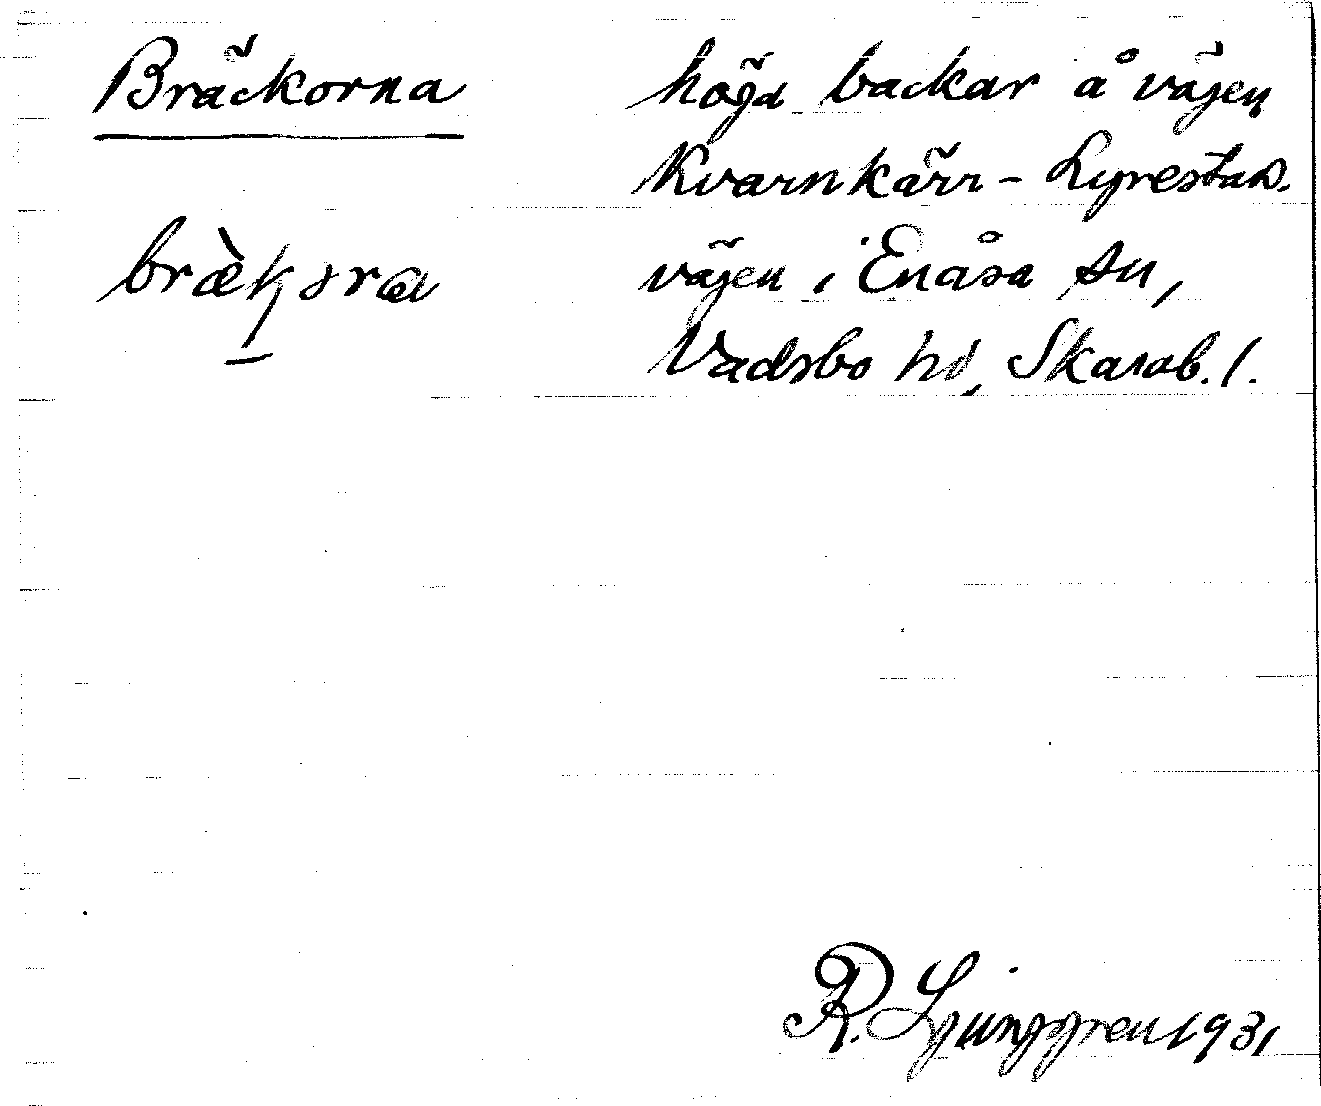 Bräckorna
bræ̀kₒra
höga backar å vägen
Kvarnkärr - Lyrestads
vägen i Enåsa sn,
Vadsbo hd, Skarab. l.
R. Ljunggren 1931